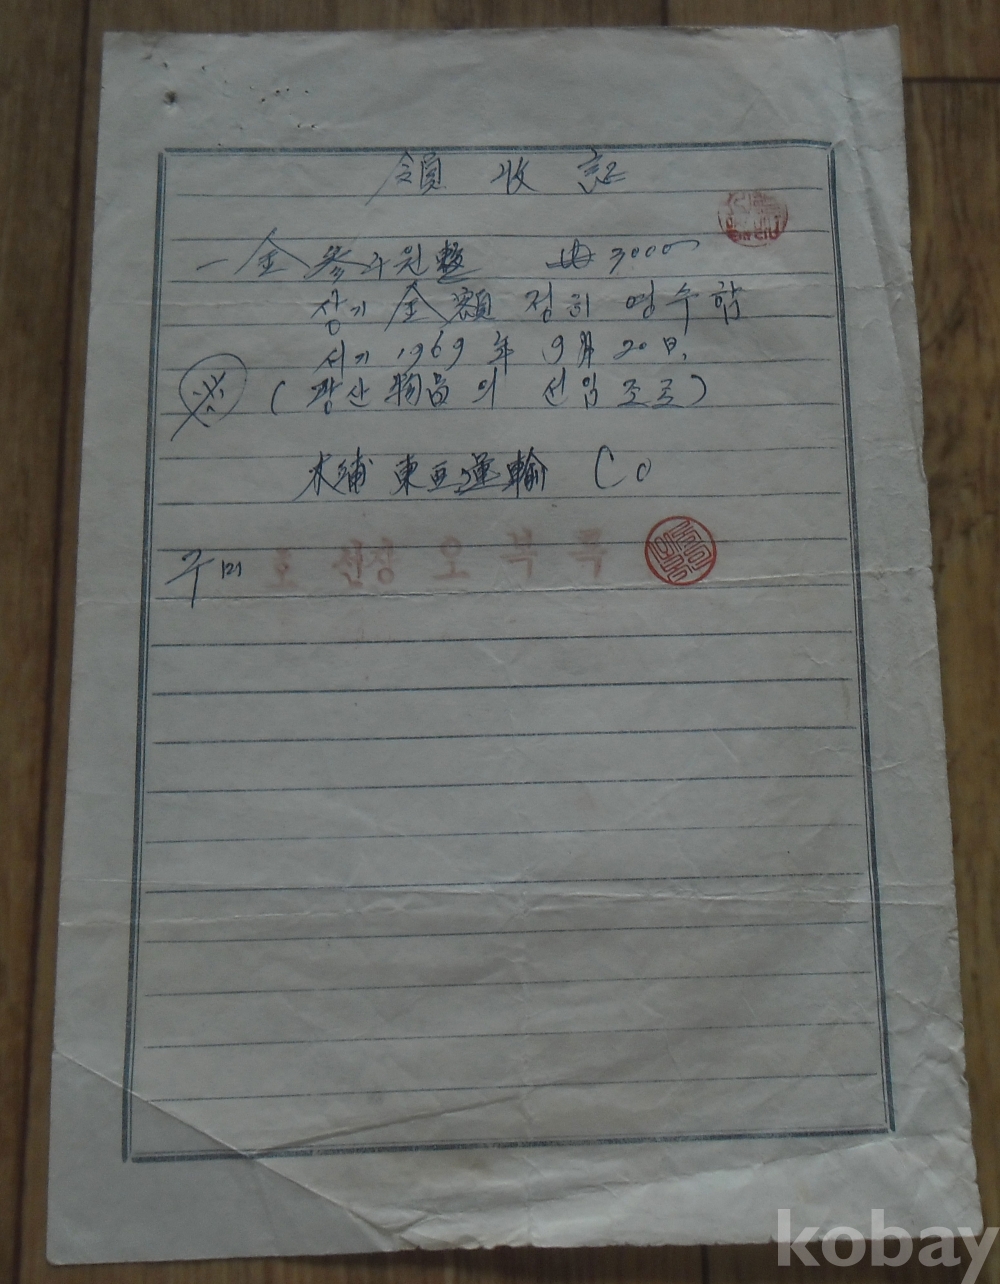 領收証
一金參수원整 ₩3000
상기 金額 정히 영수함
서기 1969年 9月 20日.
(광산物品의 선임조로)
木浦 東亞運輸 Co
호 선장 오복록
kobay